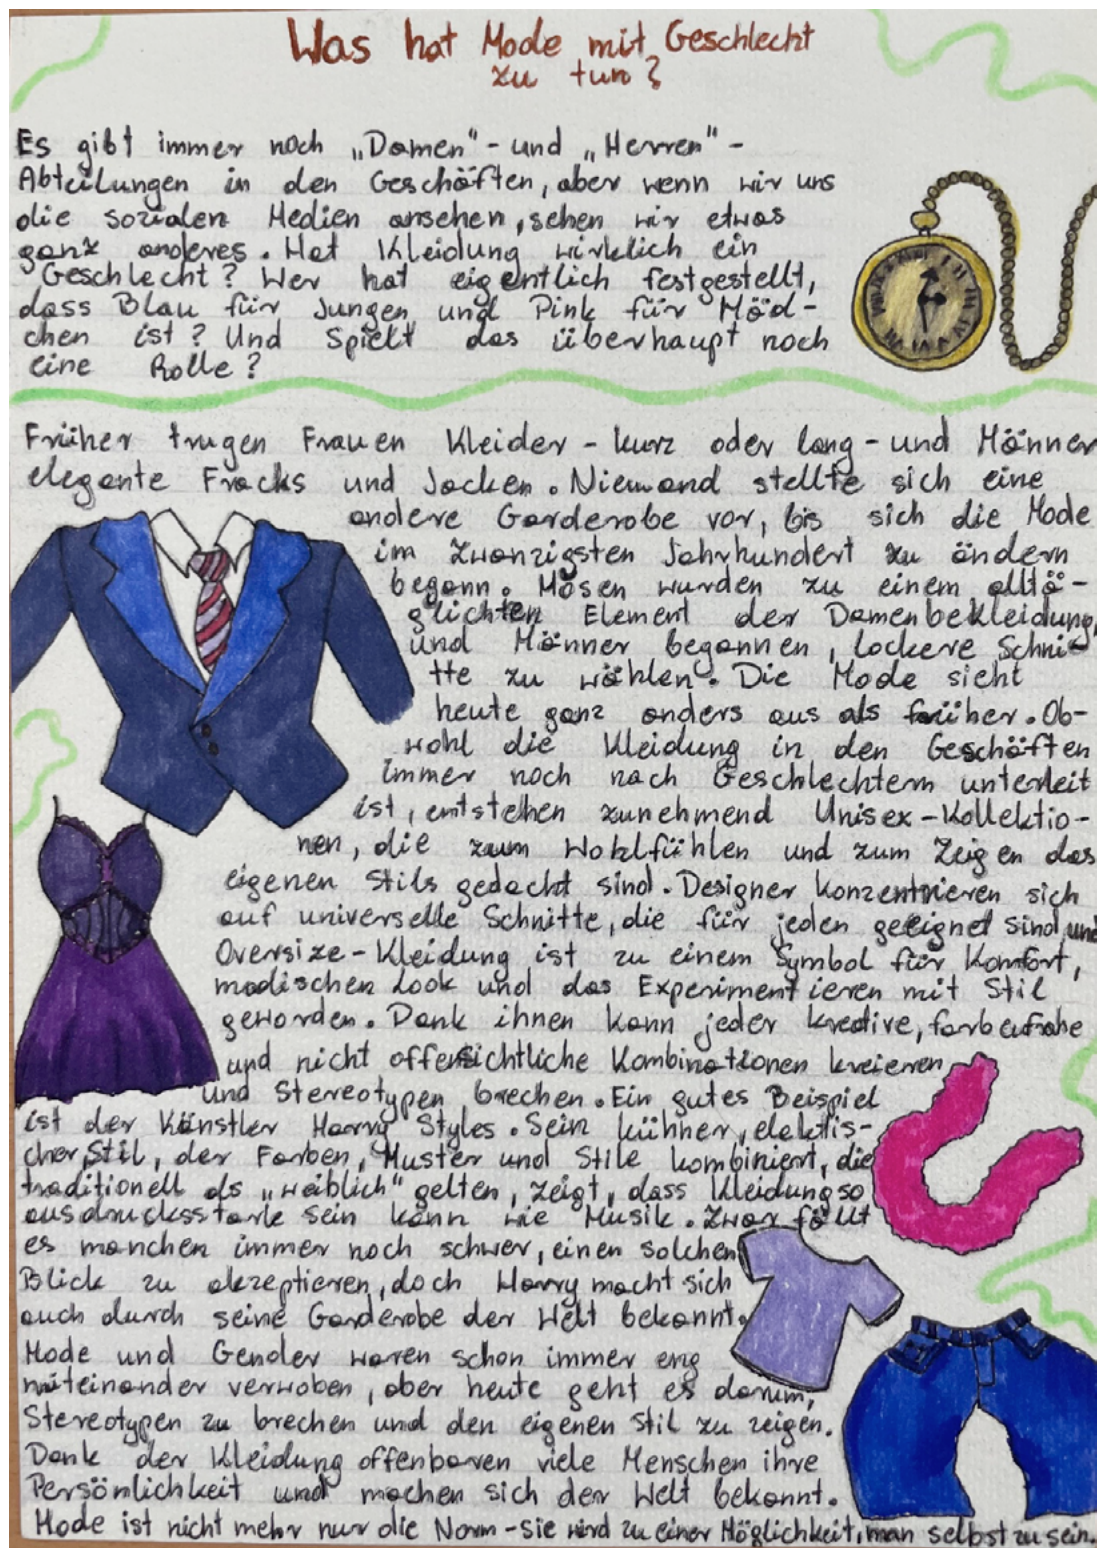 Was hat Mode mit Geschlecht
zu tun?
Es gibt immer noch „Damen"- und „Herren"-
Abteilungen in den Geschäften, aber wenn wir uns
die sozialen Medien ansehen, sehen wir etwas
ganz anderes. Hat Kleidung wirklich ein
Geschlecht? Wer hat eigentlich festgestellt,
dass Blau für Jungen und Pink für Mäd-
chen ist? Und Spielt das überhaupt noch
eine Rolle?
Früher trugen Frauen Kleider - kurz oder lang - und Männer
elegante Fracks und Jacken. Niemand stellte sich eine
andere Garderobe vor, bis sich die Mode
im zwanzigsten Jahrhundert zu ändern
begann. Hosen wurden zu einem alltä-
glichten Element der Damenbekleidung,
und Männer begannen, lockere Schni-
tte zu wählen. Die Mode sieht
heute ganz anders aus als früher. Ob-
wohl die Kleidung in den Geschäften
immer noch nach Geschlechtern unterleit
ist, entstehen zunehmend Unisex-Kollektio-
nen, die zum Wohlfühlen und zum Zeigen des
eigenen Stils gedacht sind. Designer konzentrieren sich
auf universelle Schnitte, die für jeden geeignet sind und
Oversize-Kleidung ist zu einem Symbol für Komfort,
modischen Look und das Experimentieren mit Stil
geworden. Dank ihnen kann jeder kreative, farbenfrohe
und nicht offensichtliche Kombinationen kreieren
und Stereotypen brechen. Ein gutes Beispiel
ist der Künstler Harry Styles. Sein kühner, elektis-
cher Stil, der Farben, Muster und Stile kombiniert, die
traditionell als „weiblich" gelten, zeigt, dass Kleidung so
ausdrucksstark sein kann wie Musik. Zwar fällt
es manchen immer noch schwer, einen solchen
Blick zu akzeptieren, doch Harry macht sich
auch durch seine Garderobe der Welt bekannt.
Mode und Gender waren schon immer eng
miteinander verwoben, aber heute geht es darum,
Stereotypen zu brechen und den eigenen Stil zu zeigen.
Dank der Kleidung offenbaren viele Menschen ihre
Persönlichkeit und machen sich der Welt bekannt.
Mode ist nicht mehr nur die Norm - sie wird zu einer Möglichkeit, man selbst zu sein.